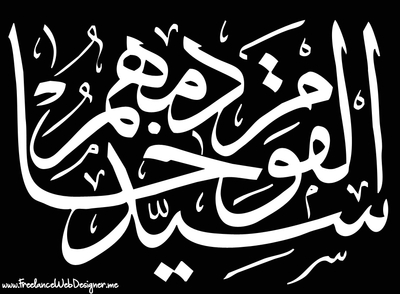 سيد القوم خادمهم
www.FreelanceWebDesigner.me